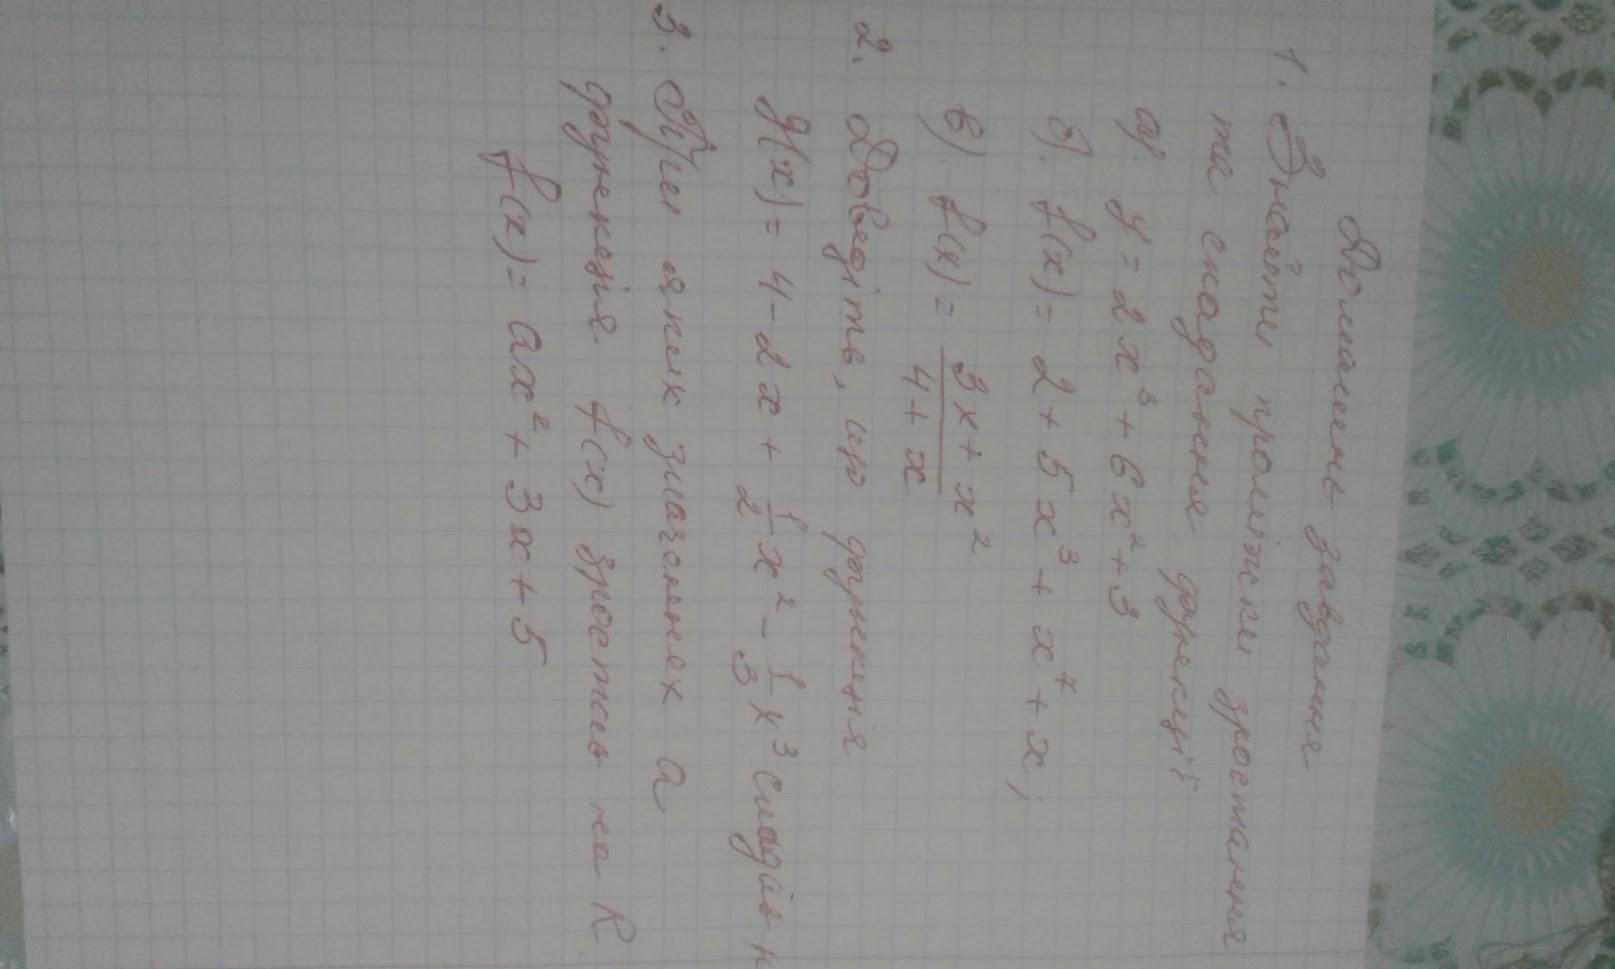 Домашнє завдання
1. Знайти проміжки зростання
та спадання функції
а). y = 2x³ + 6x² + 3
б). f(x) = 2 + 5x³ + x⁷ + x;
в) f(x) = (3x + x²)/(4 + x)
2. Доведіть, що функція
g(x) = 4 - 2x + 1/2 x² - 1/3 x³ спадає н
3. При яких значеннях a
функція f(x) зростає на R
f(x) = ax² + 3x + 5